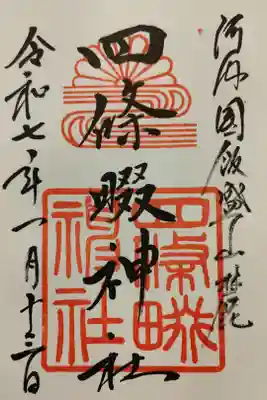 河内国飯盛山麓
四條畷神社
四條畷
神社
令和七年一月十三日